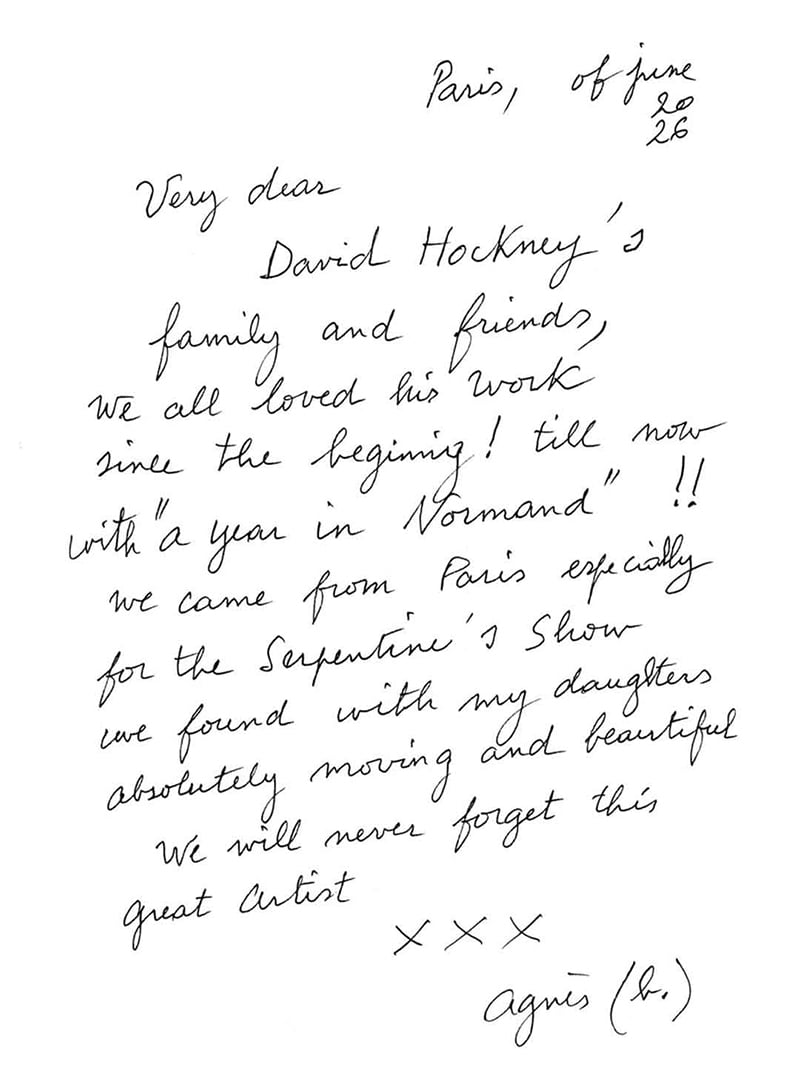 Paris, of june
20
26
Very dear
David Hockney's
family and friends,
We all loved his work
since the beginnig! till now
with "a year in Normand" !!
We came from Paris especially
for the Serpentine's Show
we found with my daughters
absolutely moving and beautiful
We will never forget this
great artist
X X X
agnès (b.)